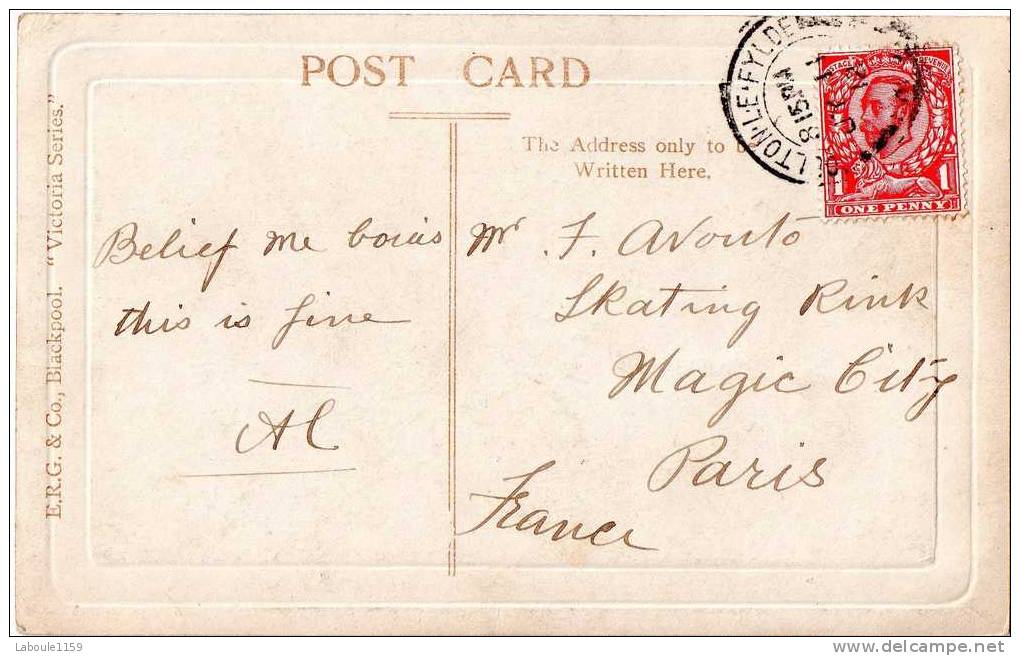 POST CARD
The Address only to b
Written Here.
E.R.G. & Co., Blackpool. "Victoria Series."
LTON-LE-FYLDE
8 15 PM
POSTAGE REVENUE
1 1
ONE PENNY
Belief me
this is fine
Al
Mr F. Avonto
Skating Rink
Magic City
Paris
France
Laboule1159
delcampe.net